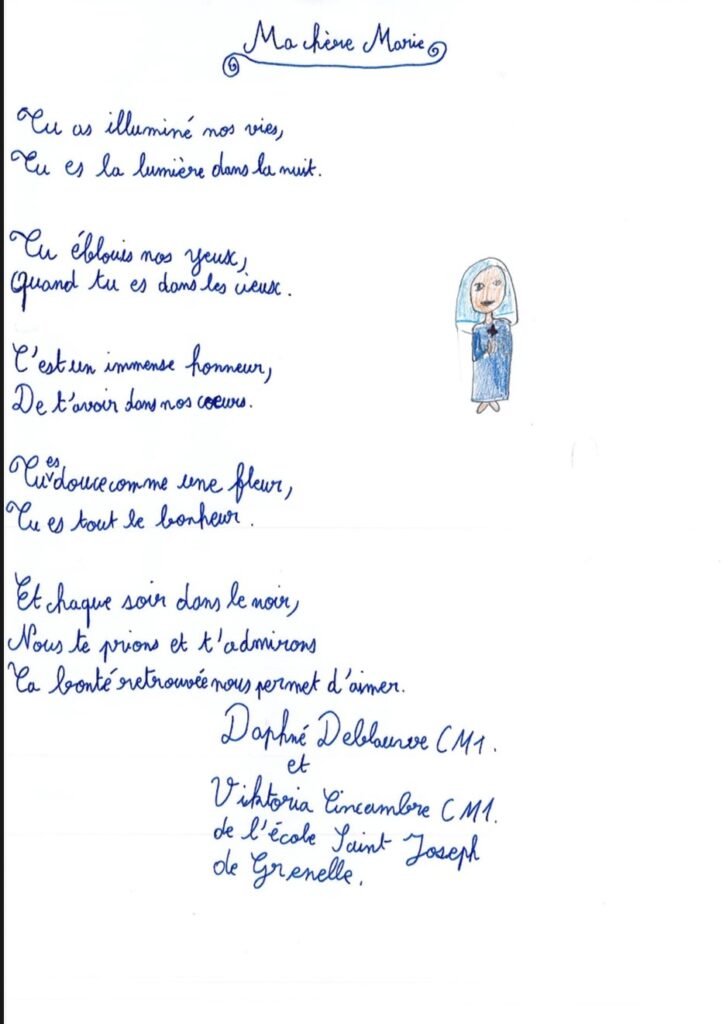 Ma chère Marie
Tu as illuminé nos vies,
Tu es la lumière dans la nuit.
Tu éblouis nos yeux,
Quand tu es dans les cieux.
C'est un immense honneur,
De t'avoir dans nos coeurs.
Tu es douce comme une fleur,
Tu es tout le bonheur.
Et chaque soir dans le noir,
Nous te prions et t'admirons
Ta bonté retrouvée nous permet d'aimer.
Daphné CM1.
et
Viktoria CM1.
de l'école Saint Joseph
de Grenelle.